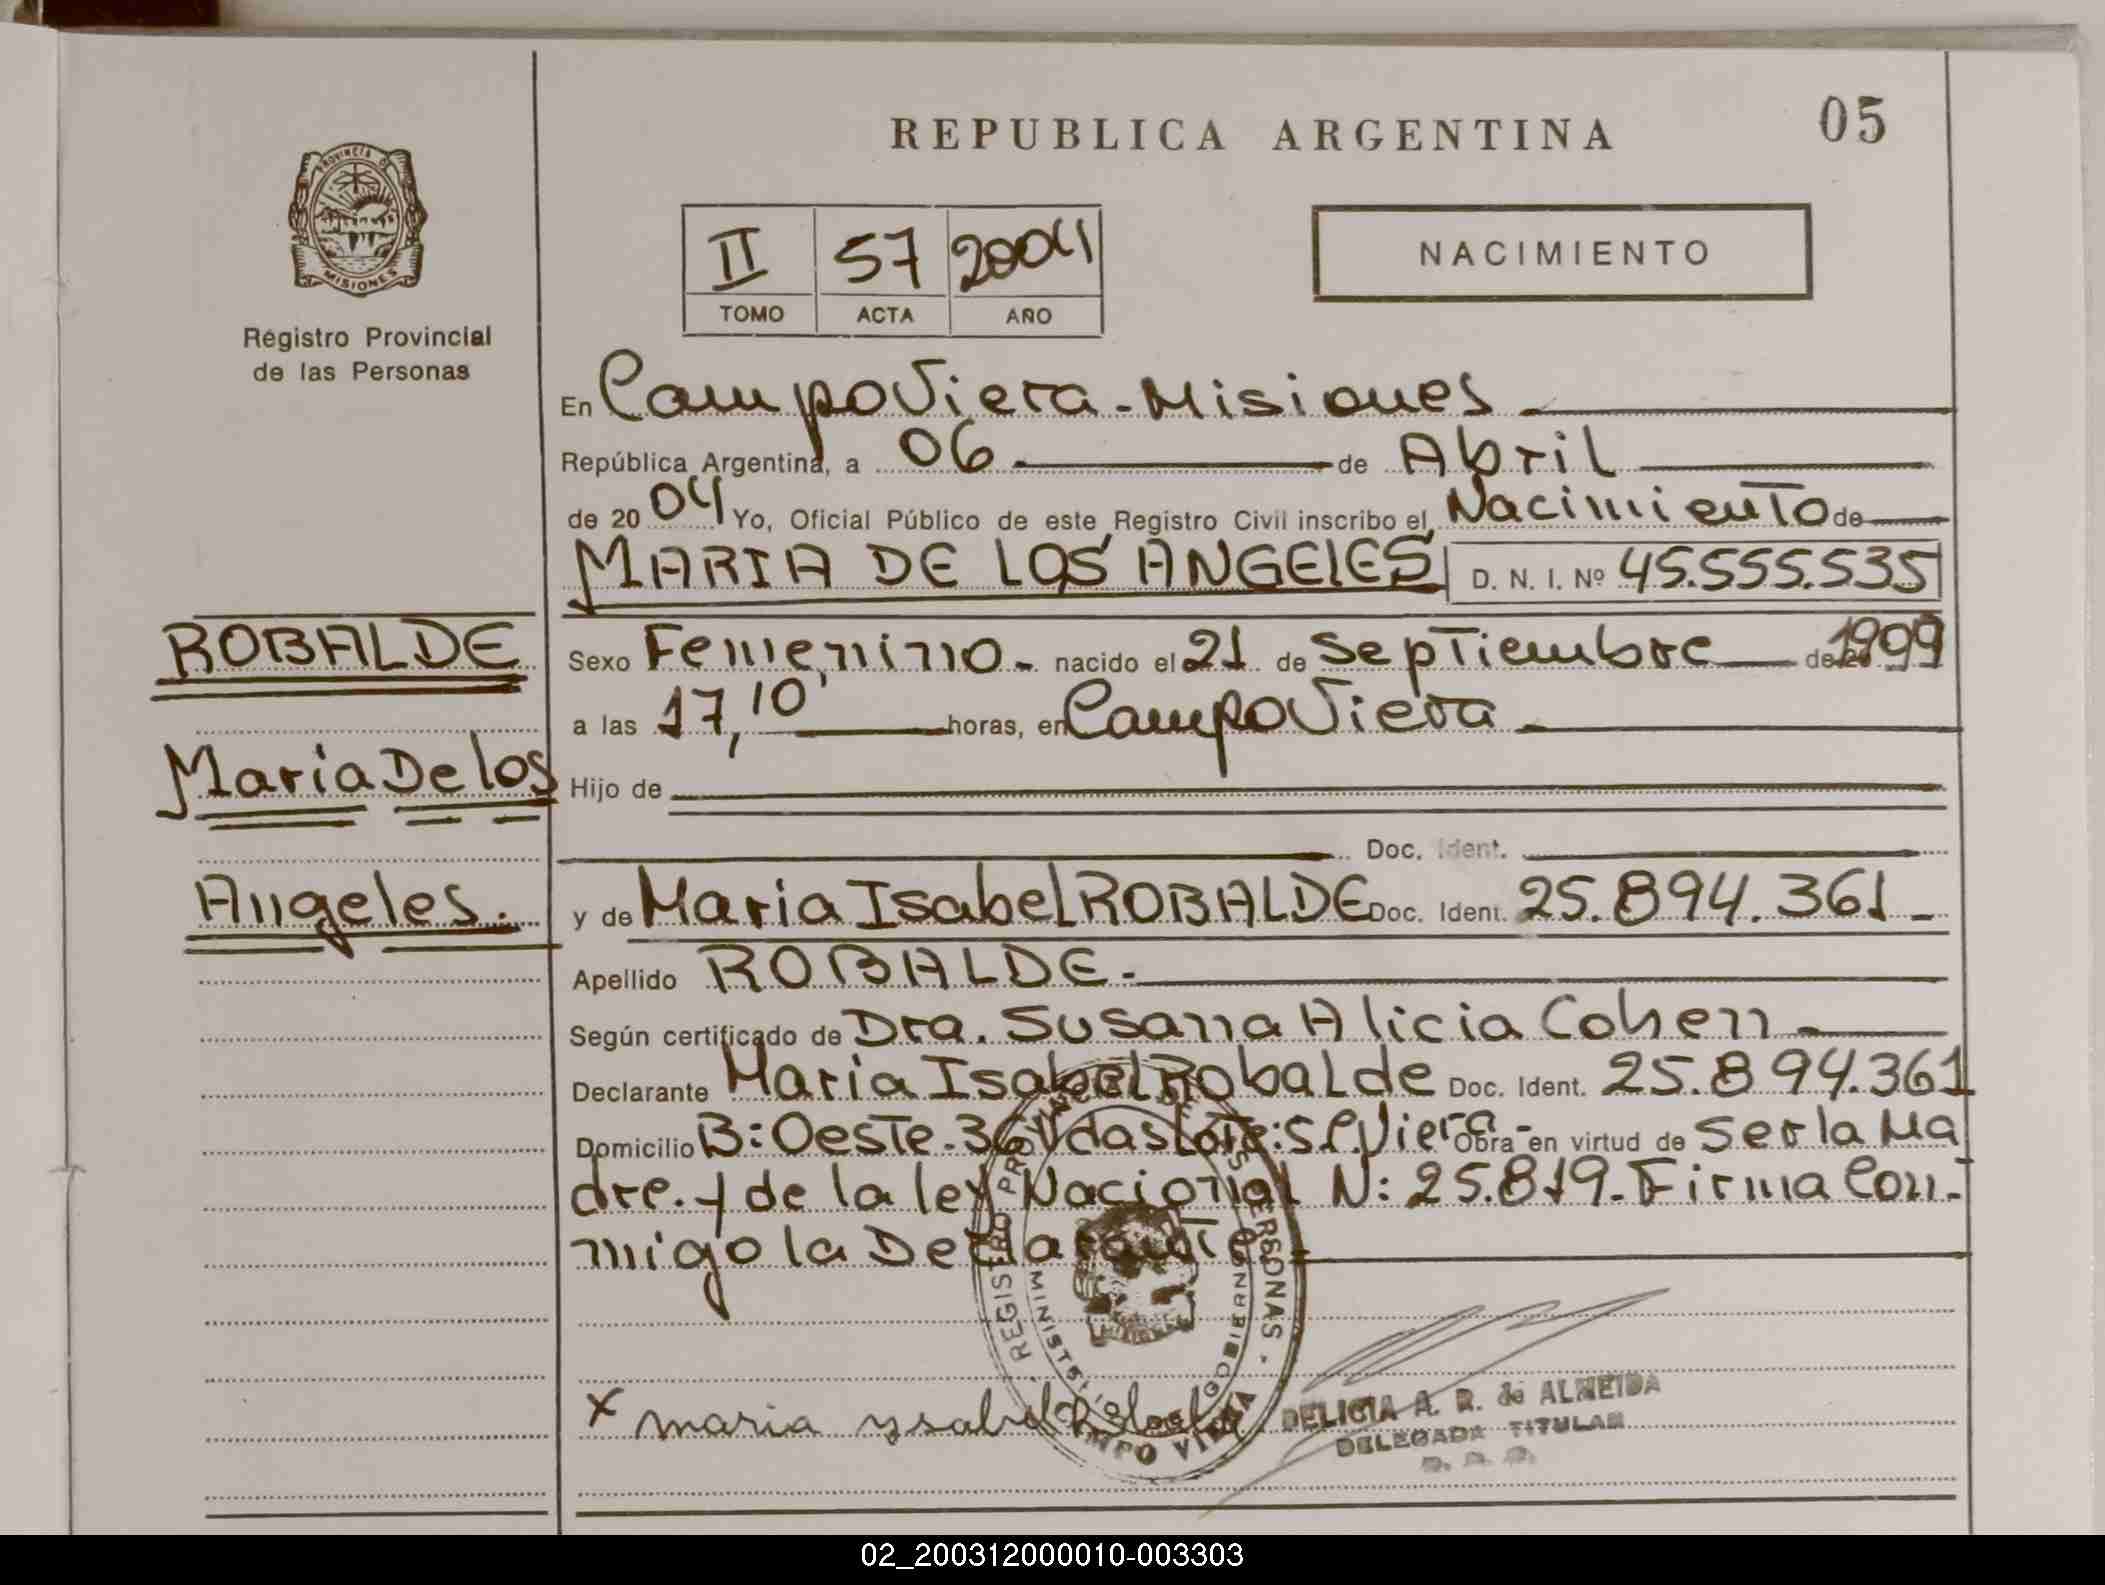 REPUBLICA ARGENTINA
05
PROVINCIA DE
MISIONES
Registro Provincial
de las Personas
II 57 2004
TOMO ACTA AÑO
NACIMIENTO
En Campo Viera - Misiones
República Argentina, a 06 de Abril
de 20 04 Yo, Oficial Público de este Registro Civil inscribo el Nacimiento de
MARIA DE LOS ANGELES D. N. I. Nº 45.555.535
ROBALDE
Sexo Femenino - nacido el 21 de Septiembre de 1999
a las 17,10' horas, en Campo Viera
Maria De los
Hijo de
Doc. Ident.
Angeles.
y de Maria Isabel ROBALDE Doc. Ident. 25.894.361 -
Apellido ROBALDE.-
Según certificado de Dra. Susana Alicia Cohen
Declarante Maria Isabel Robalde Doc. Ident. 25.894.361
Domicilio B: Oeste - 36 Vdas Lote: S. C. Viera - Obra en virtud de ser la Ma
dre. y de la ley Nacional N: 25.819. Firma Con-
migo la Declarante
REGISTRO PROVINCIAL DE LAS PERSONAS
CAMPO VIERA
x maria ysabel Robalde
DELICIA A. R. de ALMEIDA
DELEGADA TITULAR
02_200312000010-003303